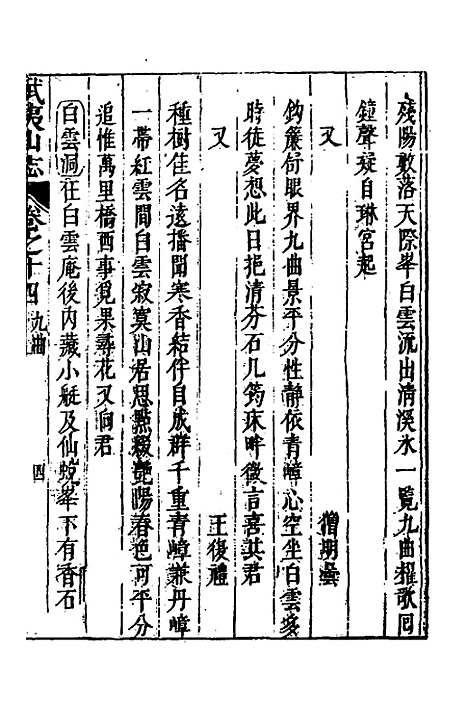 殘陽數落天際峯白雲流出清溪水一覽九曲櫂歌回
鐘聲疑自琳宮起
又　僧明曇
鈎簾舒眼界九曲景平分性靜依青嶂心空坐白雲多
時徒夢想此日挹清芬石几筠床畔微言喜共君
又　王復禮
種樹佳名遠播聞寒香結伴自成群千重青嶂兼丹嶂
一帶紅雲間白雲寂寞山居思點綴艷陽春色可平分
追惟萬里橋西事覓果尋花又向君
白雲洞在白雲庵後内藏小艇及仙蛻峯下有香石
武夷山志　卷之十四　九曲　四